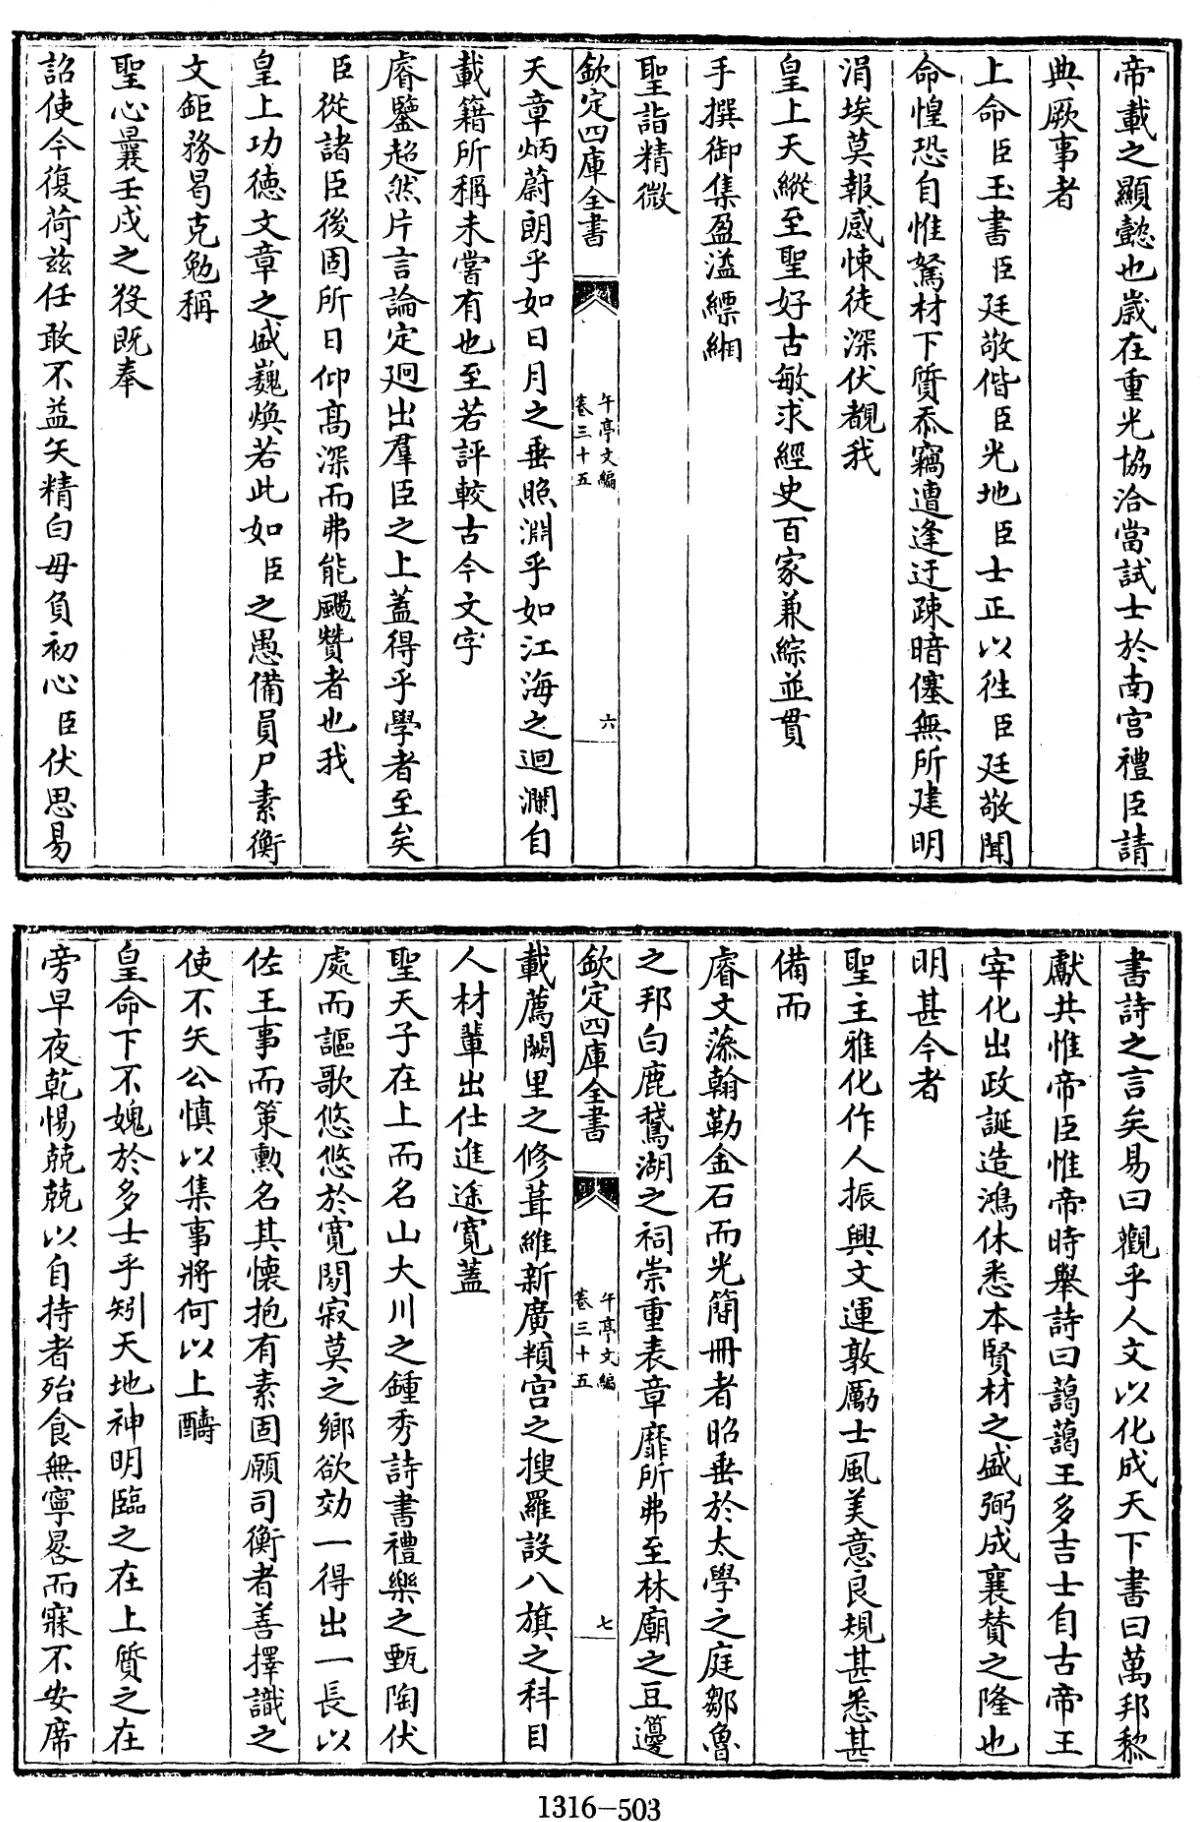 帝載之顯懿也歲在重光協洽當試士於南宫禮臣請
典厥事者
上命臣玉書臣廷敬偕臣光地臣士正以徃臣廷敬聞
命惶恐自惟駑材下質忝竊遭逢迂疎暗僿無所建明
涓埃莫報感悚徒深伏覩我
皇上天縱至聖好古敏求經史百家兼綜並貫
手撰御集盈溢縹緗
聖詣精微
欽定四庫全書
午亭文編
卷三十五
六
天章炳蔚朗乎如日月之垂照淵乎如江海之迴瀾自
載籍所稱未嘗有也至若評較古今文字
睿鑒超然片言論定迥出羣臣之上蓋得乎學者至矣
臣從諸臣後固所日仰高深而弗能颺贊者也我
皇上功德文章之盛巍煥若此如臣之愚備員尸素衡
文鉅務曷克勉稱
聖心曩壬戌之役既奉
詔使今復荷兹任敢不益矢精白毋負初心臣伏思易
書詩之言矣易曰觀乎人文以化成天下書曰萬邦黎
獻共惟帝臣惟帝時舉詩曰藹藹王多吉士自古帝王
宰化出政誕造鴻休悉本賢材之盛弼成襄賛之隆也
明甚今者
聖主雅化作人振興文運敦厲士風美意良規甚悉甚
備而
睿文藻翰勒金石而光簡冊者昭垂於太學之庭鄒魯
之邦白鹿鵞湖之祠崇重表章靡所弗至林廟之豆籩
欽定四庫全書
午亭文編
卷三十五
七
載薦闕里之修葺維新廣頖宫之搜羅設八旗之科目
人材輩出仕進途寛蓋
聖天子在上而名山大川之鍾秀詩書禮樂之甄陶伏
處而謳歌悠悠於寛閒寂莫之鄉欲効一得出一長以
佐王事而策勲名其懷抱有素固願司衡者善擇識之
使不矢公慎以集事將何以上酬
皇命下不媿於多士乎矧天地神明臨之在上質之在
旁早夜乾惕兢兢以自持者殆食無寧晷而寐不安席
1316—503